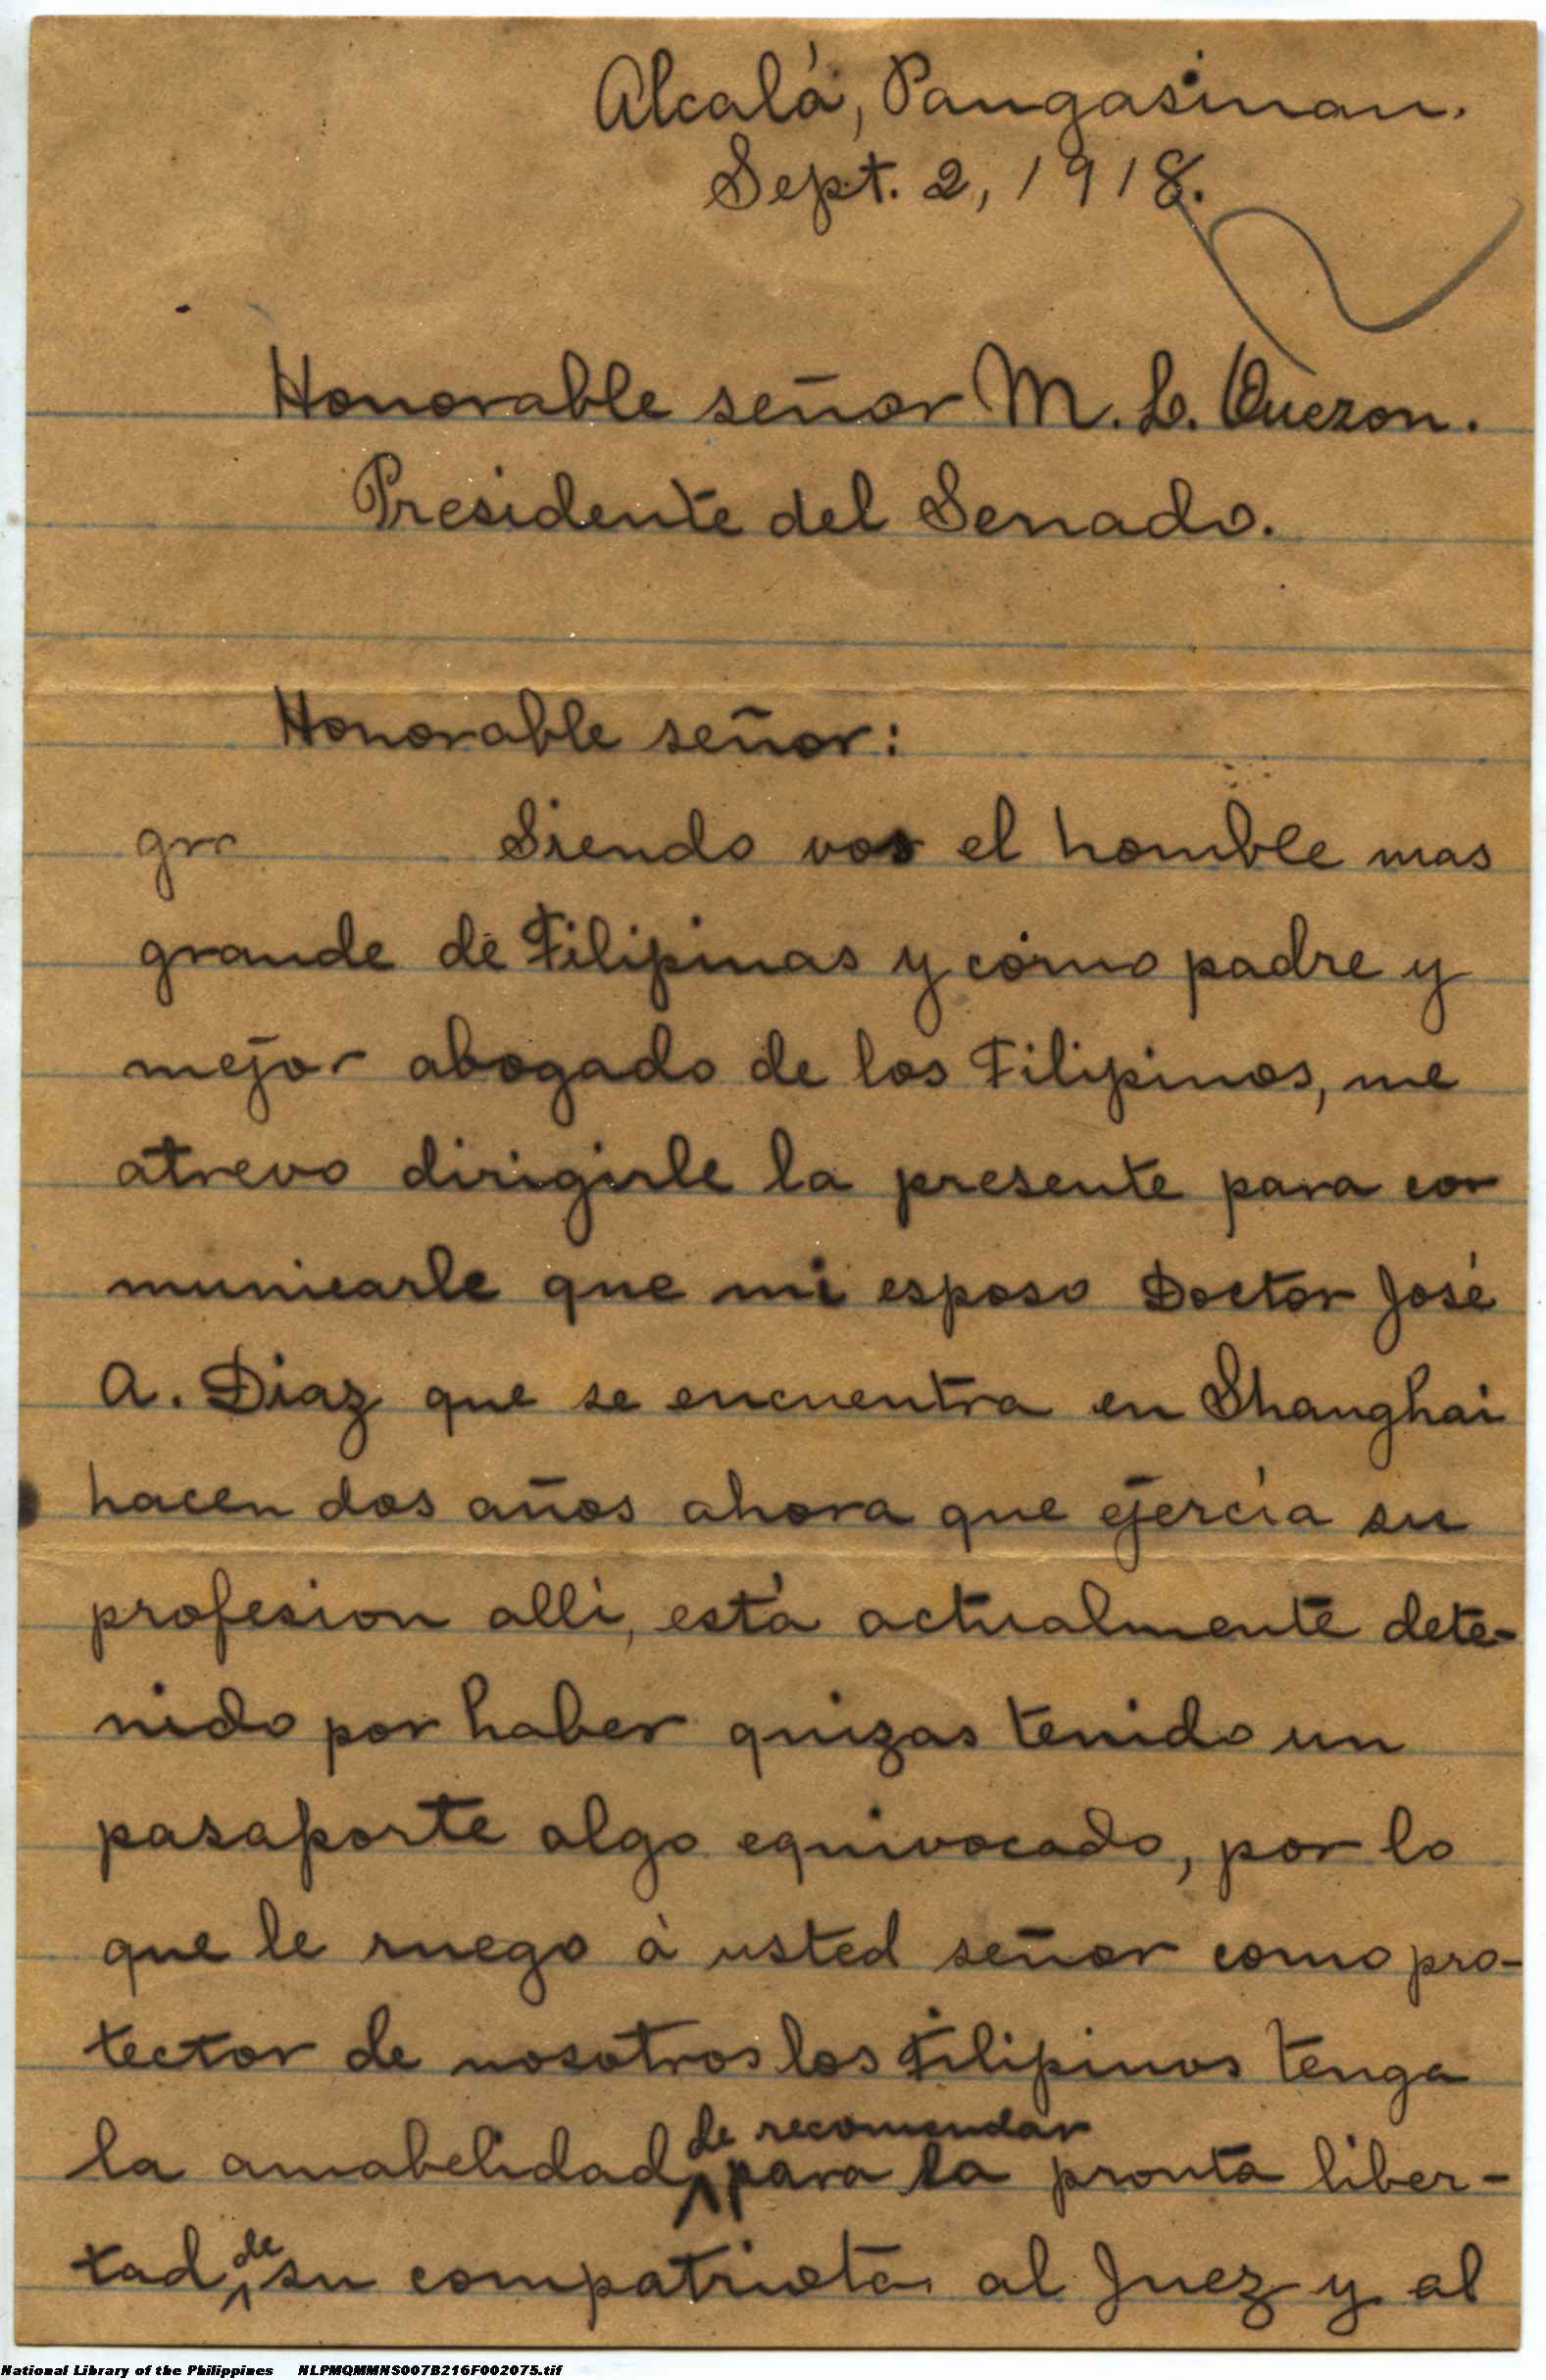 Alcalá, Pangasinan.
Sept. 2, 1918.
Honorable señor M. L. Quezon.
Presidente del Senado.
Honorable señor:
gra Siendo vos el hombre mas
grande de Filipinas y cómo padre y
mejor abogado de los Filipinos, me
atrevo dirigirle la presente para co-
municarle que mi esposo Doctor José
A. Diaz que se encuentra en Shanghai
hacen dos años ahora que ejercía su
profesion alli, está actualmente dete-
nido por haber quizas tenido un
pasaporte algo equivocado, por lo
que le ruego á usted señor como pro-
tector de nosotros los Filipinos tenga
de recomendar
la amabelidad ^ para la pronta liber-
de
tad, ^ su compatriota al Juez y al
National Library of the Philippines NLPMQMMNS007B216F002075.tif